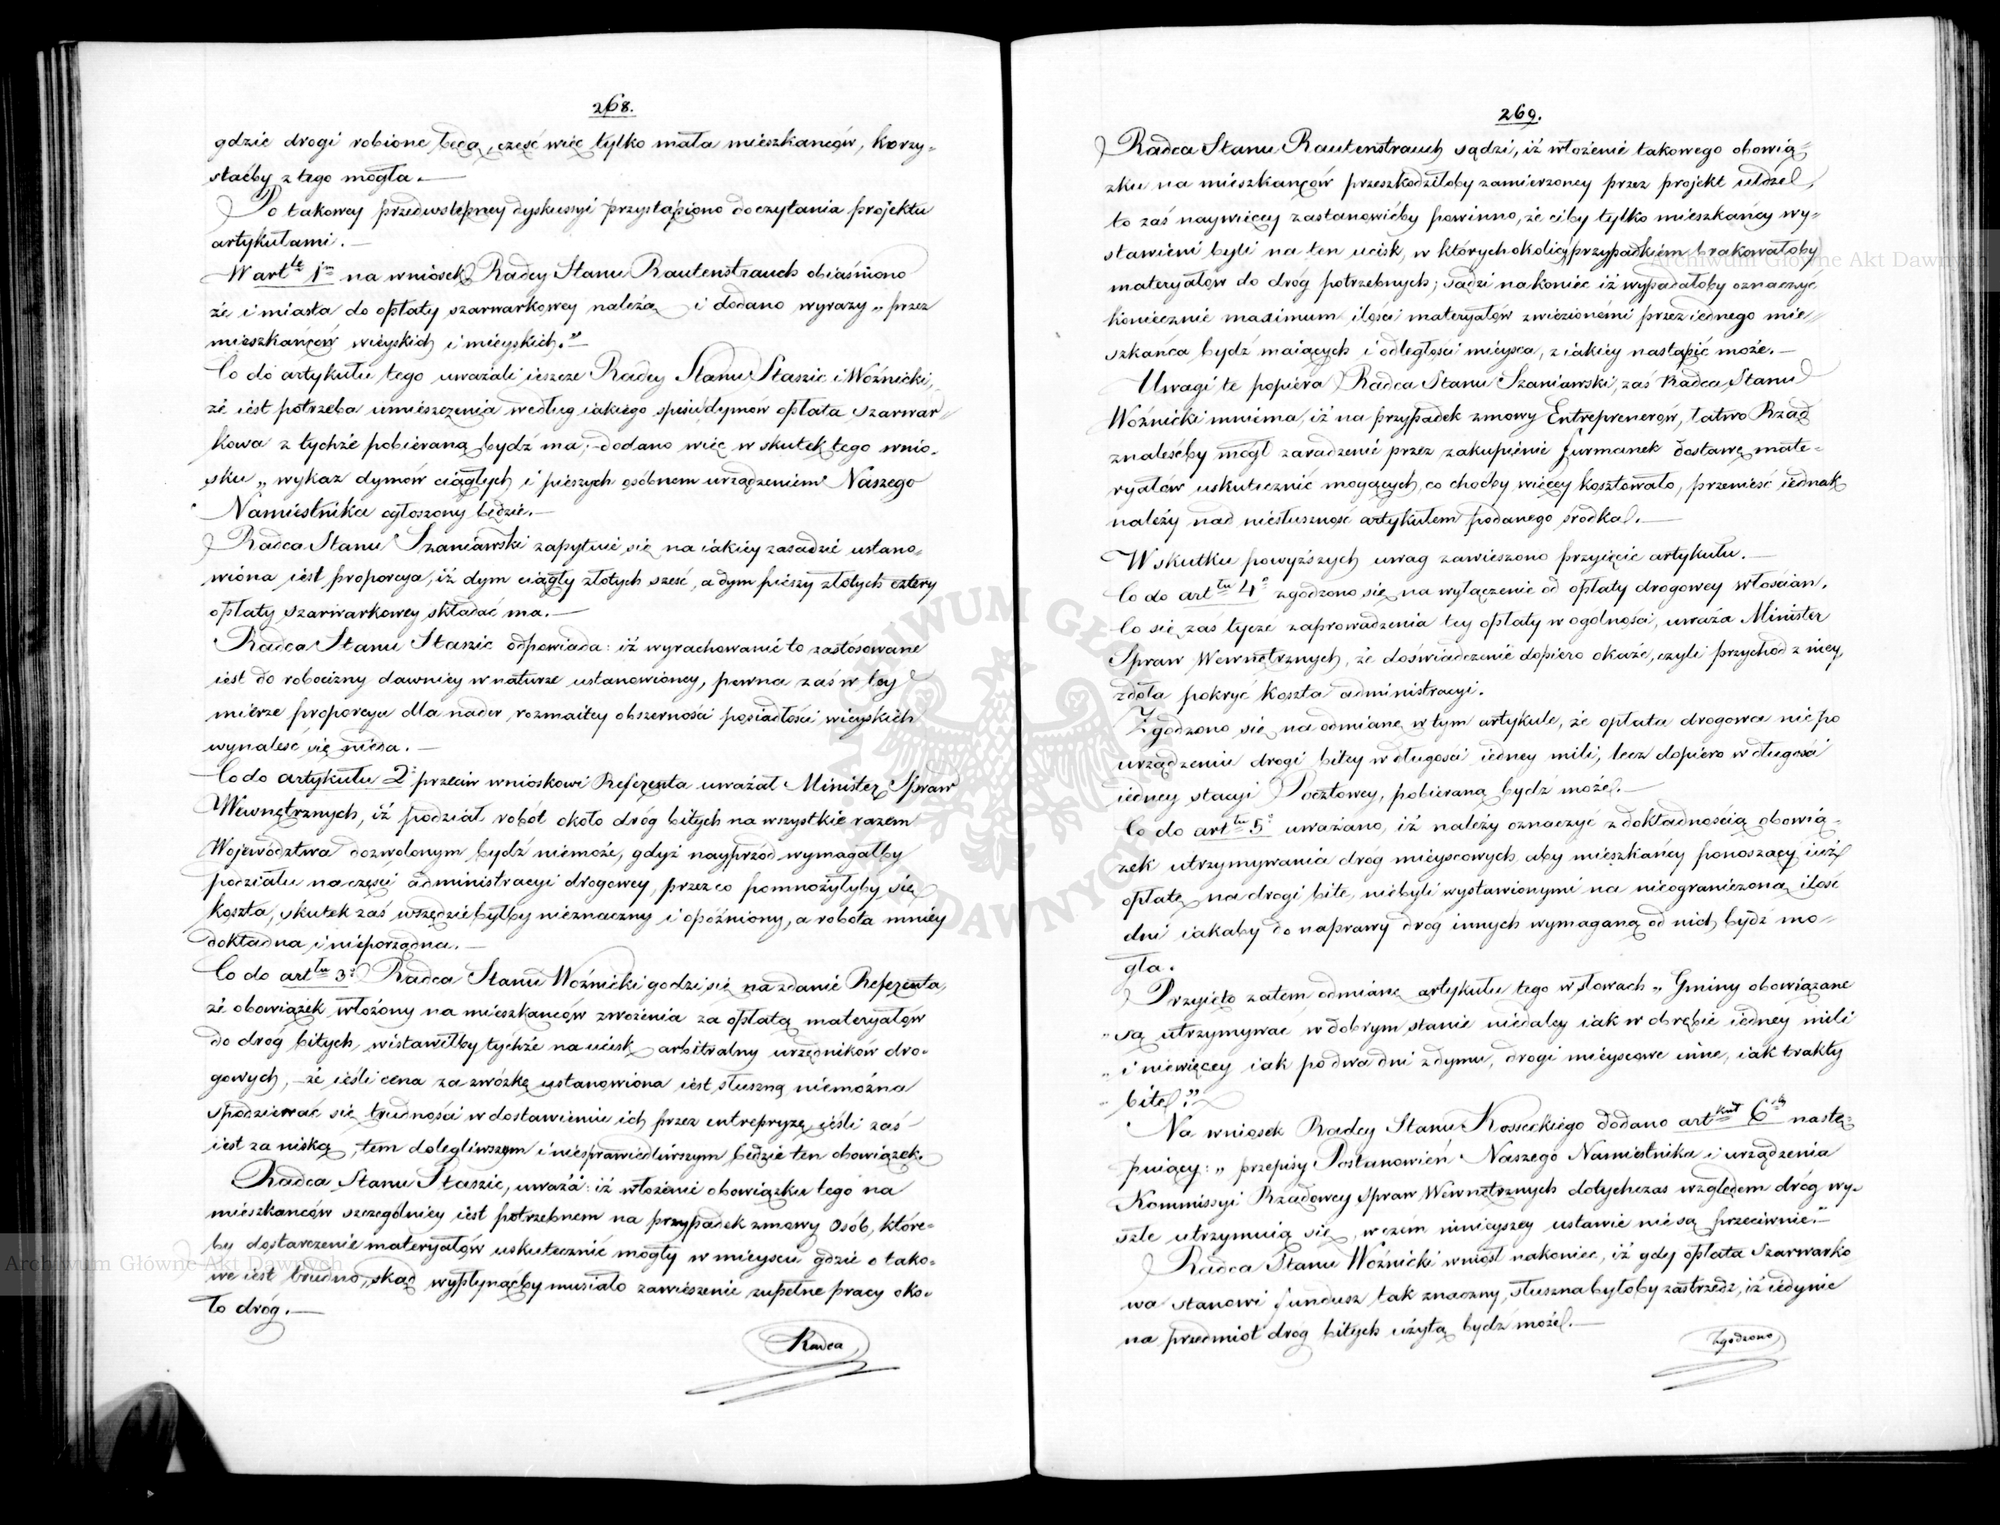 268.
gdzie drogi robione będą, część więc tylko mała mieszkańców, korzy-
staćby z tego mogła.—
Po takowey przedwstępney dyskussyi przystąpiono do czytania projektu
artykułami.—
W art.le 1.m na wniosek Radcy Stanu Rautenstrauch obiaśniono
że i miasta do opłaty szarwarkowey należą i dodano wyrazy „ przez
mieszkańców wieyskich i mieyskich."—
Co do artykułu tego uważali ieszcze Radcy Stanu Staszic i Woźnicki,
że iest potrzeba umieszczenia według iakiego spisu dymów opłata szarwar-
kowa z tychże pobieraną bydź ma; dodano więc w skutek tego wnio-
sku „ wykaz dymów ciągłych i pieszych osóbnem urządzeniem Naszego
Namiestnika ogłoszony będzie.—
Radca Stanu Szaniawski zapytuie się na iakiey zasadzie ustano-
wiona iest proporcya, iż dym ciągły złotych sześć, a dym pieszy złotych cztery
opłaty szarwarkowey składać ma.—
Radca Stanu Staszic odpowiada: iż wyrachowanie to zastósowane
iest do robocizny dawniey w naturze ustanowioney, pewna zaś w tey
mierze proporcya dla nader rozmaitey obszerności posiadłości wieyskich
wynaleść się nieda.—
Co do artykułu 2: przeciw wnioskowi Referenta uważał Minister Spraw
Wewnętrznych, iż podział robót około dróg bitych na wszystkie razem
Województwa dozwolonym bydź niemoże, gdyż nayprzód wymagałby
podziału na części administracyi drogowey, przez co pomnożyłyby się
koszta, skutek zaś wszędzie byłby nieznaczny i opóźniony, a robota mniey
dokładna i nieporządna.—
Co do art.łu 3: Radca Stanu Woźnicki godzi się na zdanie Referenta,
że obowiązek włożony na mieszkańców zwożenia za opłatą materyałów
do dróg bitych, wistawiłby tychże na ucisk arbitralny urzędników dro-
gowych, — że ieśli cena za zwózkę ustanowiona iest słuszną niemożna
spodziewać się trudności w dostawieniu ich przez entrepryzę, ieśli zaś
iest za niską, tem dolegliwszym i niesprawiedliwszym będzie ten obowiązek.
Radca Stanu Staszic, uważa: iż włożenie obowiązku tego na
mieszkańców szczególniey iest potrzebnem na przypadek zmowy osób, które-
by dostarczenie materyałów uskutecznić mogły w mieyscu gdzie o tako-
we iest trudno, skąd wypłynąćby musiało zawieszenie zupełne pracy oko-
ło dróg.—
Radca
269.
Radca Stanu Rautenstrauch sądzi, iż włożenie takowego obowią-
zku na mieszkańców przeszkodziłoby zamierzoney przez projekt uldze,
to zaś naywięcey zastanowićby powinno, że ciby tylko mieszkańcy wy-
stawieni byli na ten ucisk, w których okolicy przypadkiem brakowałoby
materyałów do dróg potrzebnych; sądzi nakoniec iż wypadałoby oznaczyć
koniecznie maximum ilości materyałów zwiezionémi przez iednego mie-
szkańca bydź maiących i odległości mieysca, z iakiey nastąpić może.—
Uwagi te popiera Radca Stanu Szaniawski, zaś Radca Stanu
Woźnicki mniema, iż na przypadek zmowy Entreprenerów, łatwo Rząd
znaleśćby mógł zaradzenie przez zakupienie furmanek dostawę mate-
ryałów uskutecznić mogących, co choćby więcey kosztowało, przenieść iednak
należy nad niesłuszność artykułem podanego środka.—
W skutku powyższych uwag zawieszono przyięcie artykułu.—
Co do art.łu 4.o zgodzono się na wyłączenie od opłaty drogowey włościan.
Co się zaś tycze zaprowadzenia tey opłaty w ogólności, uważa Minister
Spraw Wewnętrznych, że doświadczenie dopiero okaże, czyli przychód z niey
zdoła pokryć koszta administracyi.
Zgodzono się na odmianę w tym artykule, że opłata drogowa nie po
urządzeniu drogi bitey w długości iedney mili, lecz dopiero w długości
iedney stacyi Pocztowey, pobieraną bydź może.—
Co do art.łu 5: uważano, iż należy oznaczyć z dokładnością obowią-
zek utrzymywania dróg mieyscowych, aby mieszkańcy ponoszący iuż
opłatę na drogi bite, niebyli wystawionymi na nieograniczoną ilość
dni iakaby do naprawy dróg innych wymaganą od nich bydź mo-
gła.
Przyięto zatem odmianę artykułu tego w słowach „ Gminy obowiązane
„ są utrzymywać w dobrym stanie niedaley iak w obrębie iedney mili
„ i niewięcey iak po dwa dni z dymu, drogi mieyscowe inne, iak trakty
„ bite."
Na wniosek Radcy Stanu Kosseckiego dodano art.kuł 6.ty nastę-
puiący: „ przepisy Postanowień Naszego Namiestnika i urządzenia
Kommissyi Rządowey Spraw Wewnętrznych dotychczas względem dróg wy-
szłe utrzymuią się, w czém ninieyszey ustawie nie są przeciwnie."—
Radca Stanu Woźnicki wniósł nakoniec, iż gdy opłata Szarwarko
wa stanowi fundusz tak znaczny, słuszna byłoby zastrzedz, iż iedynie
na przedmiot dróg bitych użytą bydź może.—
Zgodzono
Archiwum Główne Akt Dawnych
Archiwum Główne Akt Dawnych
ARCHIWUM GŁÓWNE AKT DAWNYCH